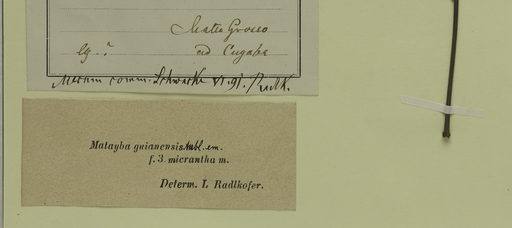 Matto Grosso
lg. ? ad Cuyaba
comm. Schwacke VI. 91. Radlk.
Matayba guianensis Aubl. em.
f. 3. micrantha m.
Determ. L Radlkofer.